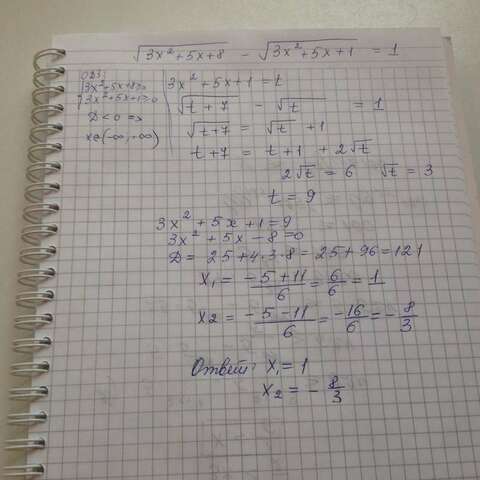 √3x²+5x+8 - √3x²+5x+1 = 1
ОДЗ:
3x²+5x+8≥0
3x²+5x+1≥0
D < 0 =>
x∈(-∞,+∞)
3x²+5x+1=t
√t+7 - √t = 1
√t+7 = √t +1
t+7 = t+1 +2√t
2√t = 6 √t = 3
t = 9
3x²+5x+1=9
3x²+5x-8=0
D = 25+4·3·8=25+96=121
x₁ = -5+11/6 = 6/6 = 1
x2 = -5-11/6 = -16/6 = -8/3
Ответ: x₁=1
x2 = -8/3